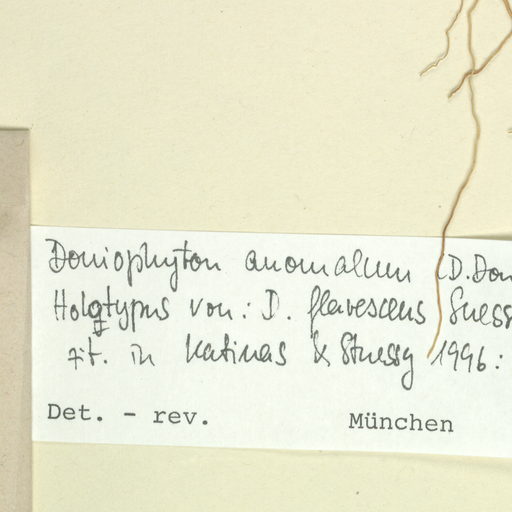 Doniophyton anomalum (D.Don
Holotypus von: D. flavescens Suess
zit. in Katinas & Stuessy 1996:
Det. - rev. München